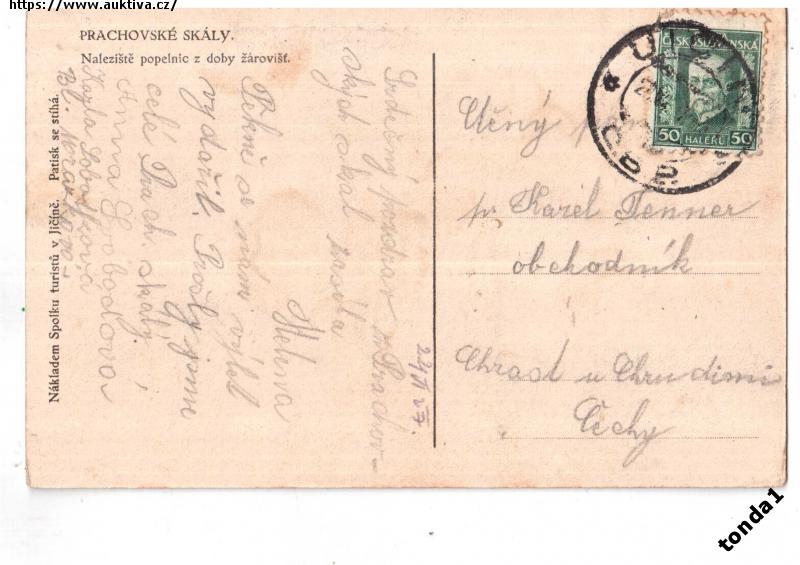 https://www.auktiva.cz/
PRACHOVSKÉ SKÁLY.
Naleziště popelnic z doby žárovišť.
Nákladem Spolku turistů v Jičíně. Patisk se stíhá.
Srdečný pozdrav z Prachov-
ských skal zasílá
Helena
Pěkně se nám výlet
vydařil. Prošly jsme
celé Prach. skály.
Anna Svobodova
22/II 27
ČESKOSLOVENSKÁ
50 HALÉŘŮ 50
Ctěný pan
p. Karel Tenner
obchodník
Chrast u Chrudimi
Čechy
tonda1